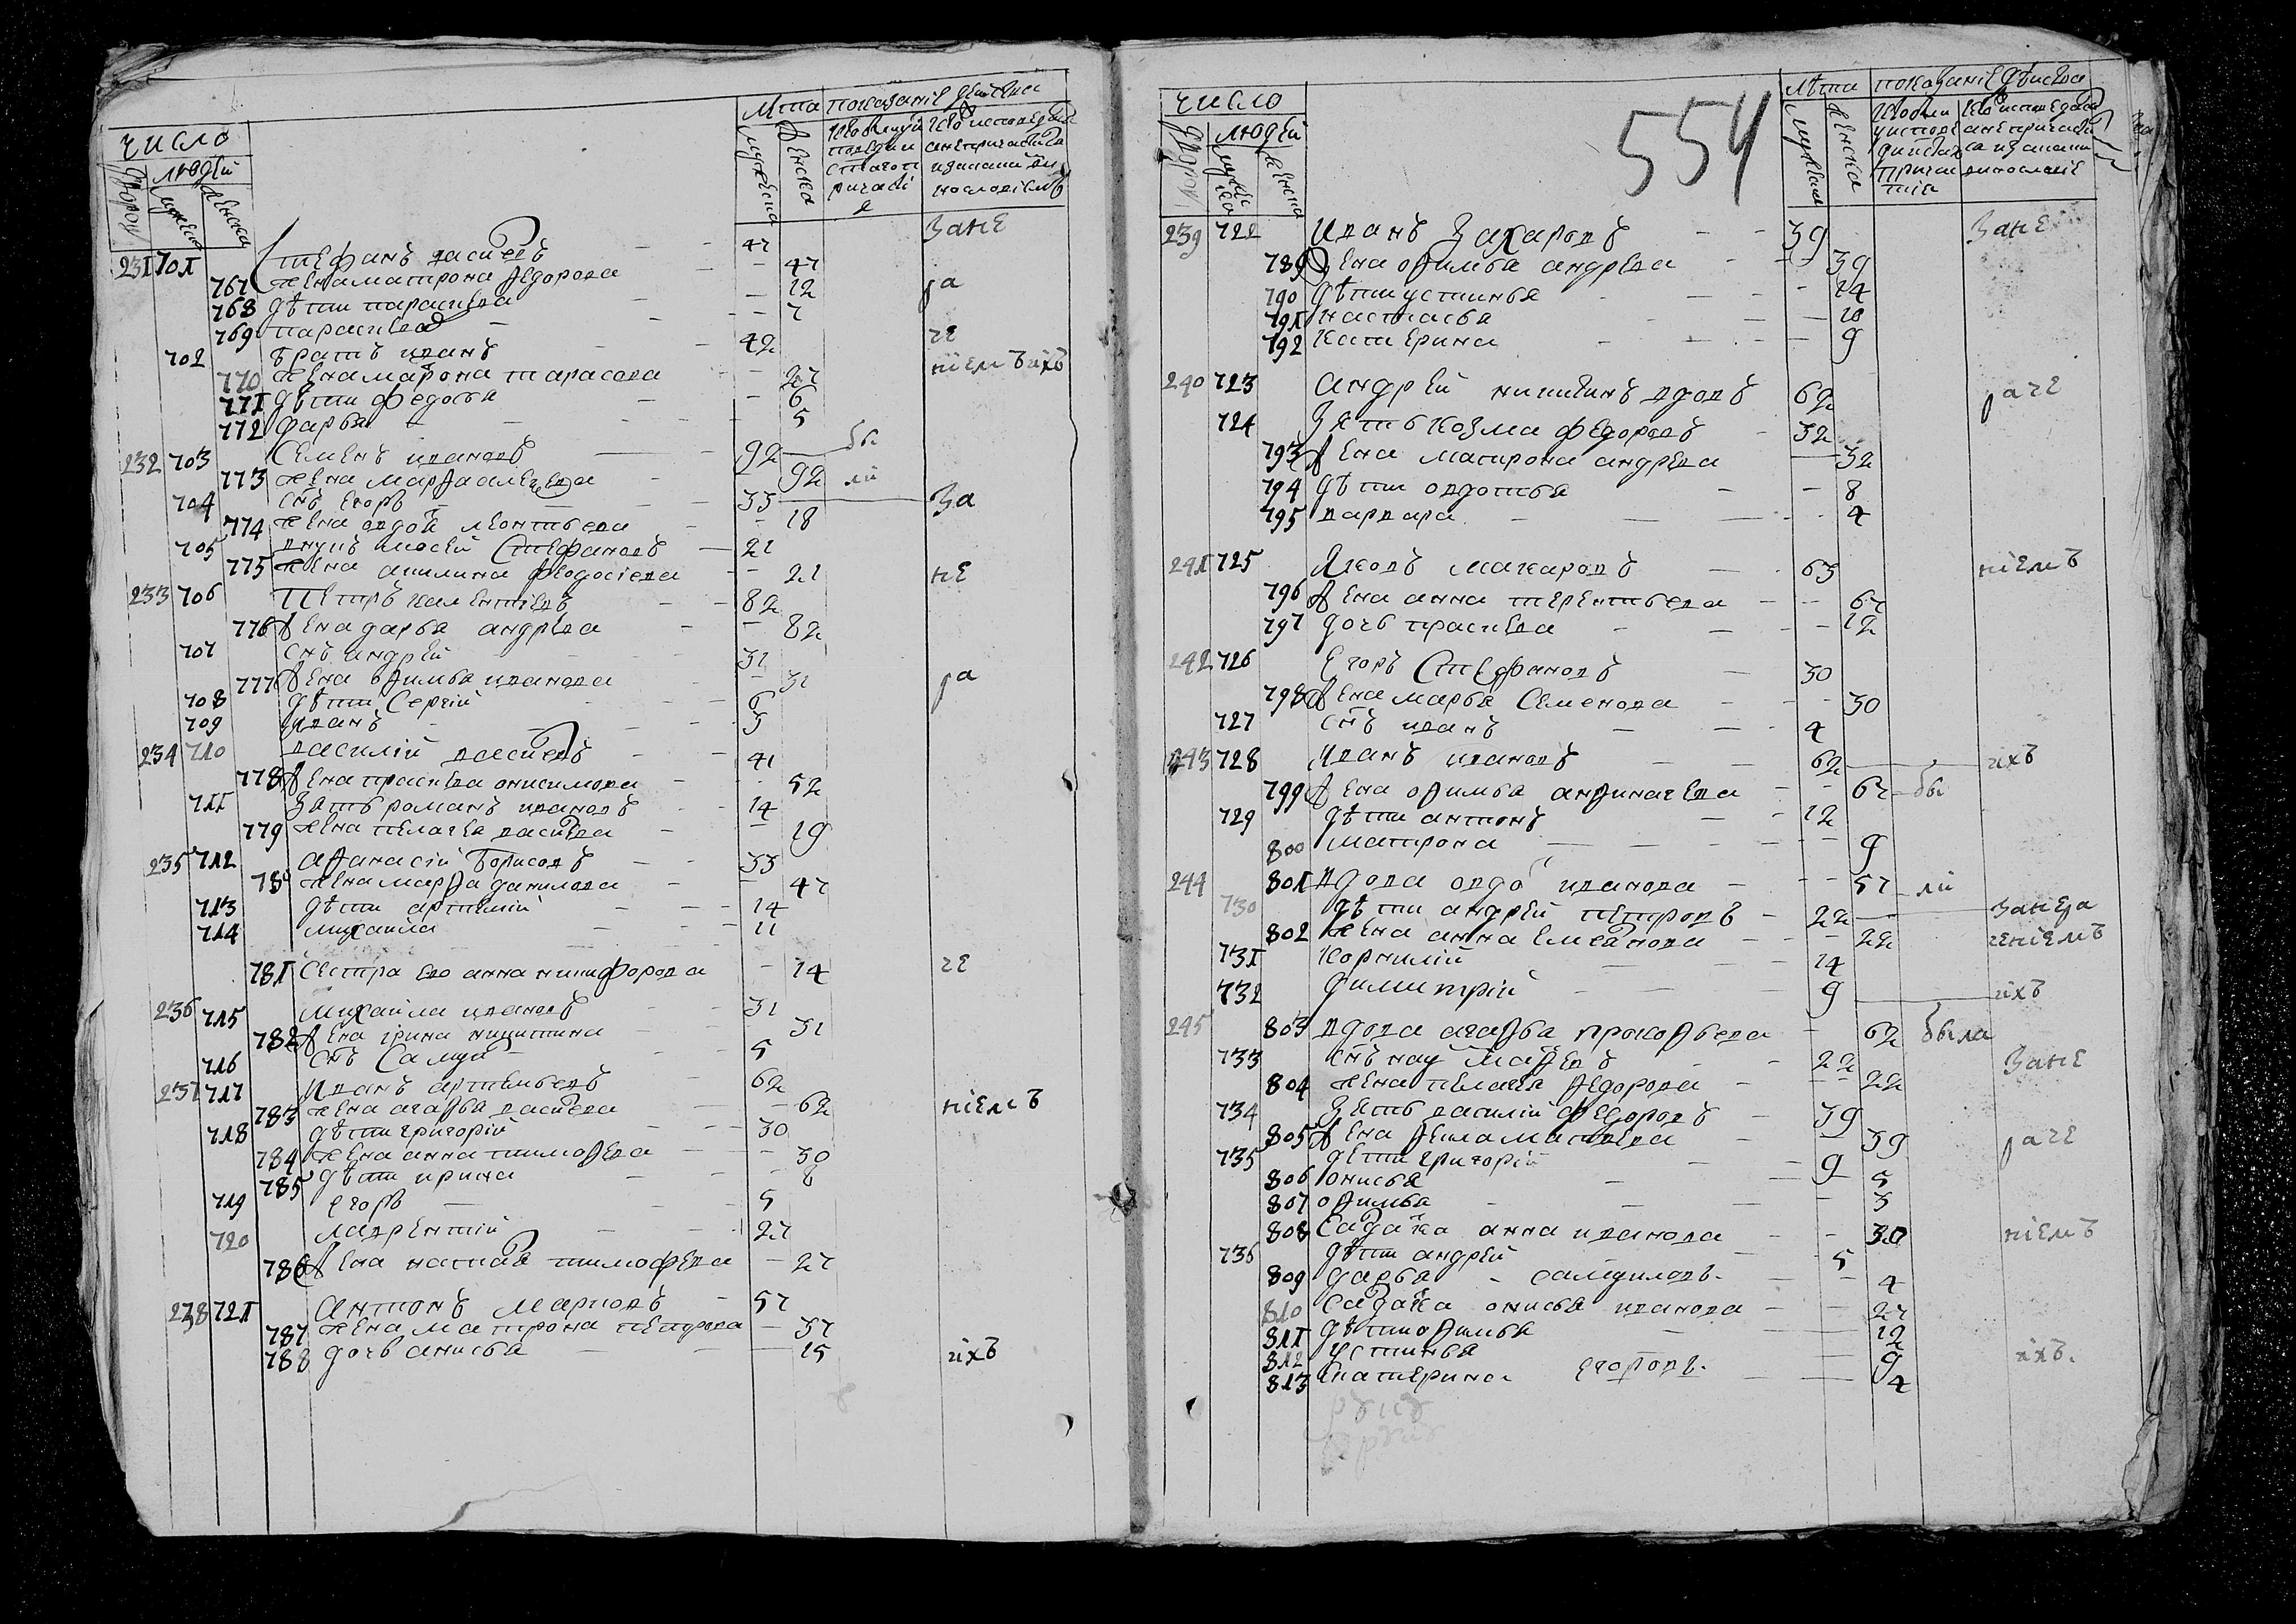 число
людей
дворов
мужеска
женска
лѣта
показание действа
мужеска
женска
231 701 Стефанъ васильевъ 47 зане
767 жена матрона федорова 47
768 дѣти параскева 12 ра
769 параскева 7
702 братъ иванъ 42 че
770 жена матрона тарасова 27 ниемъ ихъ
771 дѣти федосья 6
772 дарья 5
232 703 Семенъ ивановъ 92 бы
773 жена марфа алексеева 92 ли
704 снъ егоръ 33 за
774 жена авдотья леонтьева 18
705 внукъ мосей Стефановъ 21
775 жена акилина феодосiева 21 не
233 706 Петръ калентьевъ 82
776 жена дарья андреева 82
707 снъ андрей 31
777 жена офимья иванова 31 ра
708 дѣти Сергiй 6
709 иванъ 3
234 710 василiй васильевъ 41
778 жена прасковья онисимова 52
711 зять романъ ивановъ 14
779 жена пелагея васильева 19
235 712 афанасiй борисовъ 33
780 жена марфа данилова 47
713 дѣти артемiй 14
714 михаила 11
781 сестра его анна никифорова 14 че
236 715 михаила ивановъ 31
782 жена iрина никитина 31
716 снъ Самуи 5
237 717 иванъ артемьевъ 62
783 жена агафья васильева 62 нiемъ
718 дѣти григорiй 30
784 жена анна тимофеева 30
785 дѣти ирина 8
719 егоръ 5
720 лаврентiй 27
786 жена настасья тимофеева 27
238 721 антонъ марковъ 57
787 жена матрона петрова 37
788 дочь анисья 15 ихъ
554
число
людей
дворов
мужеска
женска
лѣта
показанiе дѣиства
мужеска
женска
239 722 иванъ Захаровъ 39 зане
789 жена офимья андреева 39
790 дѣти устинья 14
791 настасья 10
792 катерина 9
240 723 андрей никитинъ вдовъ 62 раче
724 зять козма федоровъ 32
793 жена матрона андреева 32
794 дѣти овдотья 8
795 варвара 4
241 725 яковъ макаровъ 63 нiемъ
796 жена анна терентьева 67
797 дочь прасковья 12
242 726 егоръ Стефановъ 30
798 жена марья Семенова 30
727 снъ иванъ 4
243 728 иванъ ивановъ 62 ихъ
799 жена офимья анфиногева 67 бы
729 дѣти антонъ 12
800 матрона 9
244 801 вдова овдо иванова 57 ли
730 дѣти андрей петровъ 22 занера
802 жена анна емельянова 22 ченiемъ
731 корнилiй 14
732 димитрiй 9 ихъ
245 803 вдова агафья прокофьева 62 была
733 снъ нау матвеевъ 22 зане
804 жена пелагея федорова 22
734 зять василiй федоровъ 39
805 жена фекла матвеева 39 раче
735 дѣти григорiй 9
806 онисья 5
807 офимья 3
808 Салдатка анна иванова 30 нiемъ
736 дѣти андрей 5
809 дарья самуиловъ. 4
810 салдатка онисья иванова 27
811 дѣти офимья 12
812 устинья 9 ихъ.
813 катерина егоровъ. 4